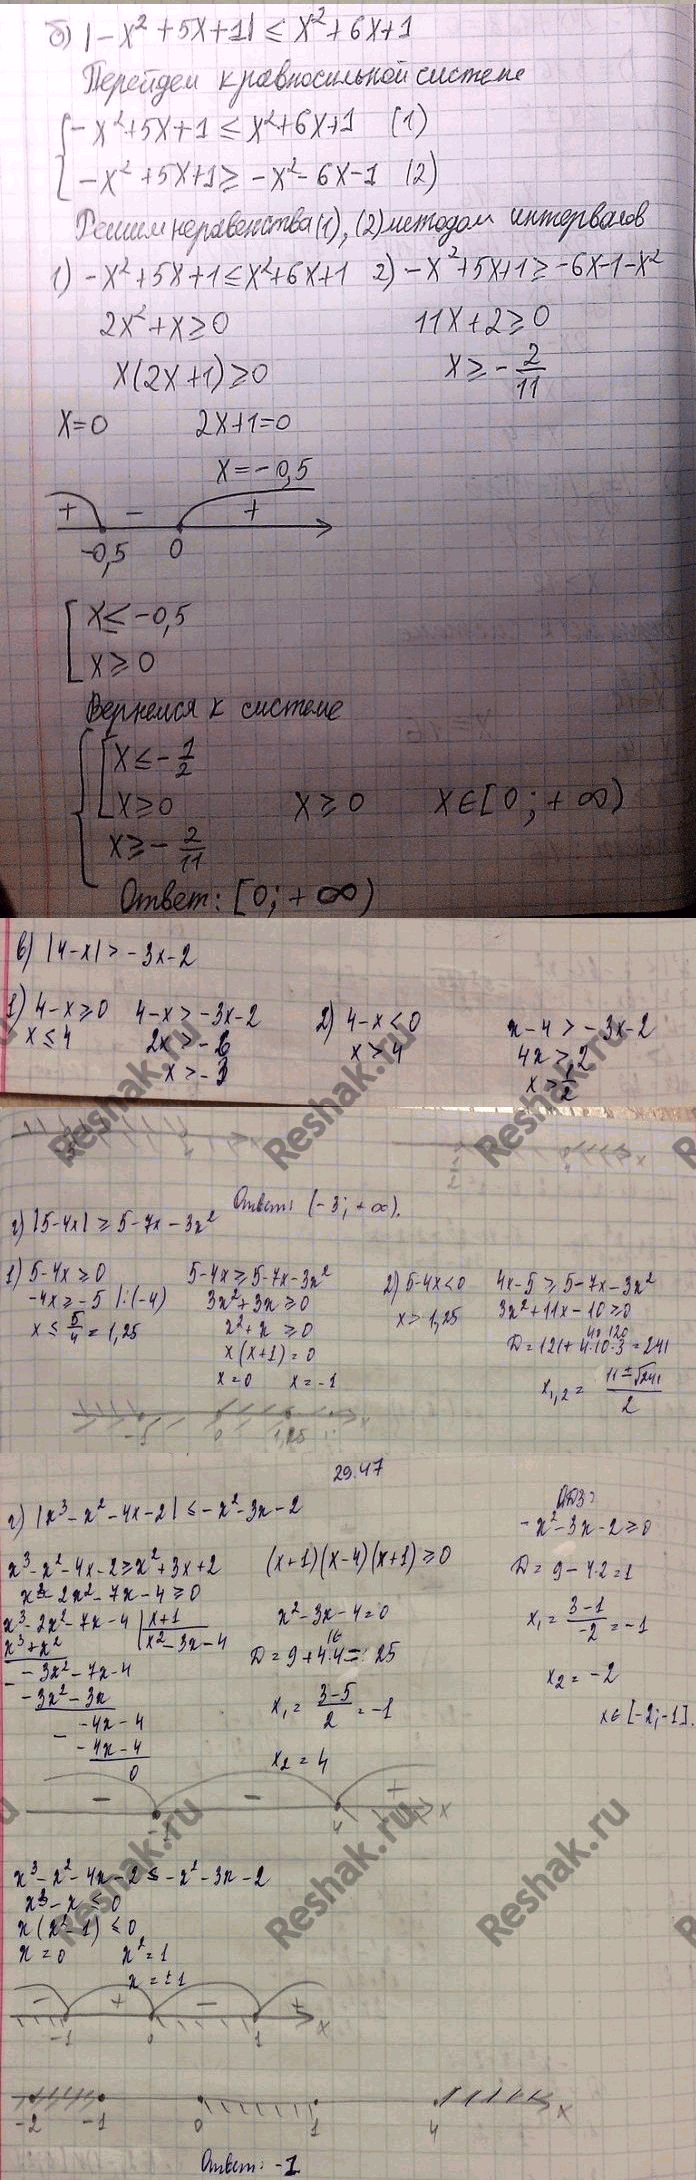 б) |-x² + 5x + 1| ≤ x² + 6x + 1
Перейдем к равносильной системе
{ -x² + 5x + 1 ≤ x² + 6x + 1 (1)
-x² + 5x + 1 ≥ -x² - 6x - 1 (2)
Решим неравенства (1), (2) методом интервалов
1) -x² + 5x + 1 ≤ x² + 6x + 1 2) -x² + 5x + 1 ≥ -6x - 1 - x²
2x² + x ≥ 0 11x + 2 ≥ 0
x(2x + 1) ≥ 0 x ≥ -2/11
x = 0 2x + 1 = 0
x = -0,5
+ - +
-0,5 0
[ x ≤ -0,5
x ≥ 0
Вернемся к системе
{ [ x ≤ -1/2
x ≥ 0 x ≥ 0 x ∈ [0; +∞)
x ≥ -2/11
Ответ: [0; +∞)
в) |4-x| > -3x-2
1) 4-x ≥ 0 4-x > -3x-2 2) 4-x < 0 x-4 > -3x-2
x ≤ 4 2x > -6 x > 4 4x > 2
x > -3 x > 1/2
Reshak.ru Reshak.ru
Ответ: (-3; +∞).
г) |5-4x| ≥ 5-7x-3x²
1) 5-4x ≥ 0 5-4x ≥ 5-7x-3x² 2) 5-4x < 0 4x-5 ≥ 5-7x-3x²
-4x ≥ -5 |:(-4) 3x²+3x ≥ 0 x > 1,25 3x²+11x-10 ≥ 0
x ≤ 5/4 = 1,25 x²+x ≥ 0 D = 121+4·10·3 = 241
x(x+1) = 0
x = 0 x = -1 x₁,₂ = (11±√241)/2
-1 0 1,25 x
29.47
г) |x³-x²-4x-2| ≤ -x²-3x-2 ОДЗ:
-x²-3x-2 ≥ 0
x³-x²-4x-2 ≥ x²+3x+2 (x+1)(x-4)(x+1) ≥ 0 D = 9-4·2 = 1
x³-2x²-7x-4 ≥ 0
x³-2x²-7x-4 | x+1 x²-3x-4 = 0 x₁ = (3-1)/-2 = -1
x³+x² x²-3x-4
-3x²-7x-4 D = 9+4·4 = 25 x₂ = -2
-3x²-3x
-4x-4 x₁ = (3-5)/2 = -1 x ∈ [-2;-1].
-4x-4
0 x₂ = 4
- - +
-1 4 x
Reshak.ru Reshak.ru
x³-x²-4x-2 ≤ -x²-3x-2
x³-x ≤ 0
x(x²-1) ≤ 0
x = 0 x² = 1
x = ±1
- + - +
-1 0 1 x
-2 -1 0 1 4 x
Ответ: -1